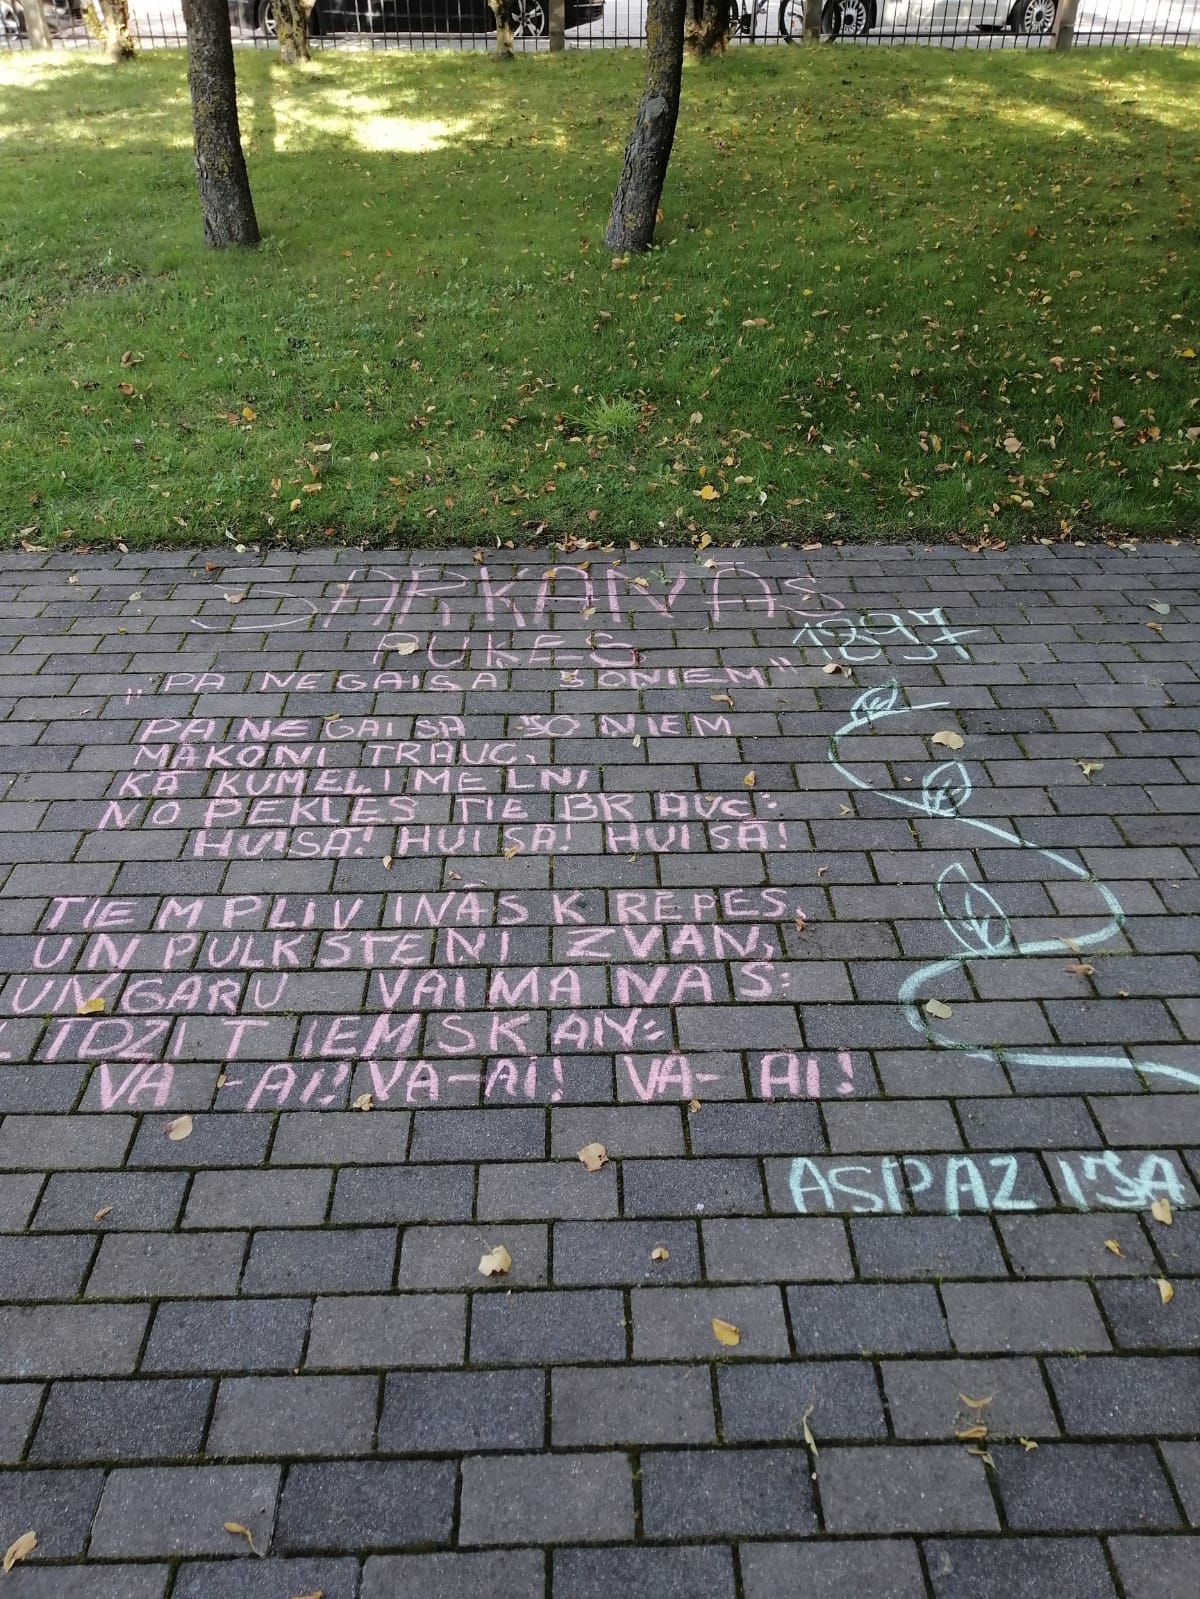 SARKANAS
PUĶES
1897
"PA NEGAISA SONIEM"
PA NEGAISA SONIEM
MĀKOŅI TRAUC,
KĀ KUMEĻI MELNI
NO PEKLES TIE BRAUC:
HUISĀ! HUISĀ! HUISĀ!
TIEM PLIVINĀS KRĒPES,
UN PULKSTEŅI ZVAN,
UN GARU VAIMANAS:
LĪDZI TIEM SKAN:
VA-AI! VA-AI! VA-AI!
ASPAZIJA